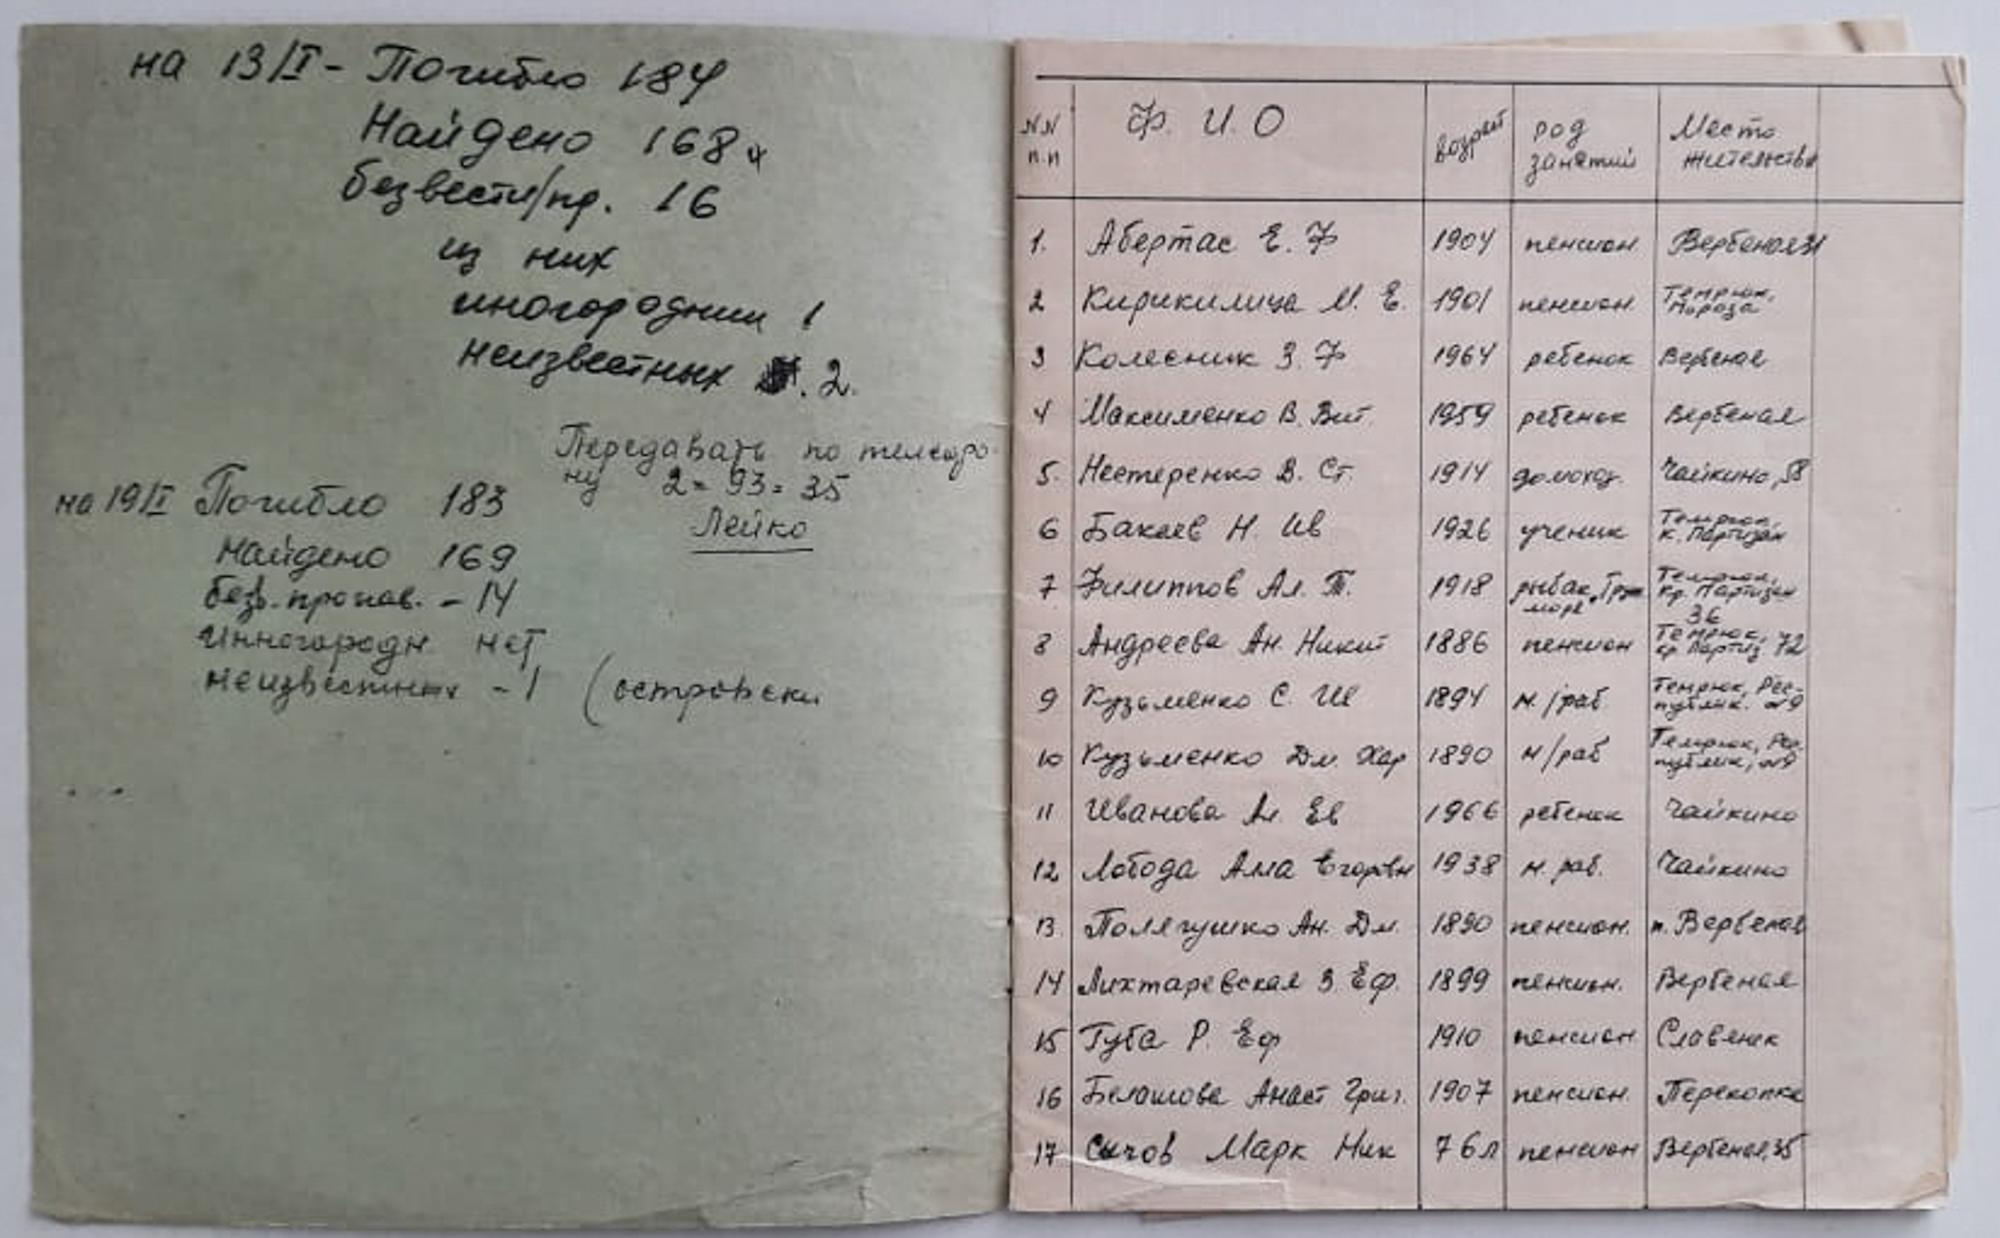 на 13/I - Погибло 184
Найдено 168 ч
без вести/пр. 16
из них
иногородний 1
неизвестных 2.
Передавать по телефо-
ну 2=93=35
Лейко
на 19/I Погибло 183
найдено 169
безь. пропав. - 14
Инногородн нет
неизвестных - 1 (островски
N.N п.п Ф. И. О возраст род занятий Место жительства
1. Абертас Е. Ф 1904 пенсион Вербеная 31
2 Кирикилица М. Е. 1901 пенсион. Темрюк, Мороза
3 Колесник З. Ф 1964 ребенок Вербеная
4 Максименко В. Вит. 1959 ребенок Вербеная
5. Нестеренко В. Ст. 1914 домохоз. Чайкино, 58
6 Бакаев Н. Ив 1926 ученик Темрюк, к. Партизан
7 Филиппов Ал. Т. 1918 рыбак, море Темрюк, кр. Партизан 36
8 Андреева Ан. Никит 1886 пенсион Темрюк, кр. Партиз 72
9 Кузьменко С. Ш 1894 н./раб. Темрюк, Рес-публик. №9
10 Кузьменко Дм. Хар 1890 н/раб Темрюк, Рес. публик, №9
11 Иванова Ал. Ев 1966 ребенок Чайкино
12 Лобода Алла Егоровн 1938 н. раб. Чайкино
13. Полягушко Ан. Дм. 1890 пенсион. п. Вербеная
14 Лихтаревская З. Еф. 1899 пенсион. Вербеная
15 Губа Р. Еф 1910 пенсион Славянск
16 Белашова Анаст Григ. 1907 пенсион. Перекопка
17 Сычов Марк Ник 76 л пенсион Вербеная, 35